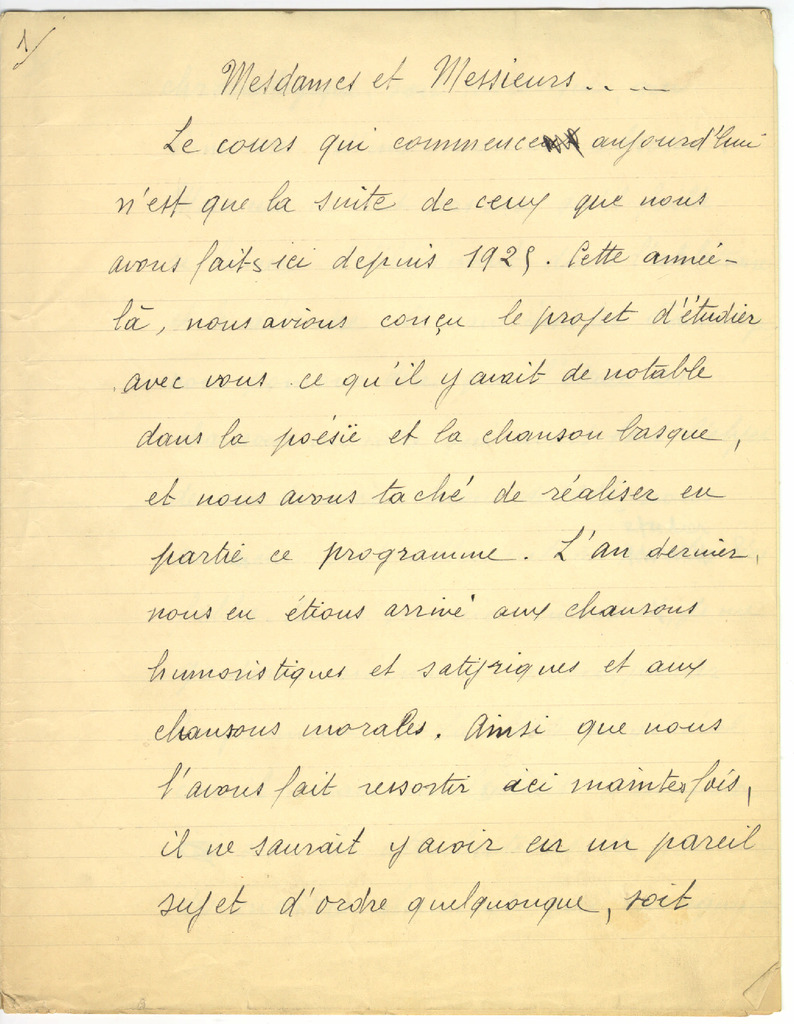 1/
Mesdames et Messieurs....
Le cours qui commence aujourd'hui
n'est que la suite de ceux que nous
avons faits ici depuis 1925. Cette année-
là, nous avions conçu le projet d'étudier
avec vous ce qu'il y avait de notable
dans la poésie et la chanson basque,
et nous avons taché de réaliser en
partie ce programme. L'an dernier,
nous en étions arrivé aux chansons
humoristiques et satyriques et aux
chansons morales. Ainsi que nous
l'avons fait ressortir ici maintes fois,
il ne saurait y avoir en un pareil
sujet d'ordre quelquonque, soit